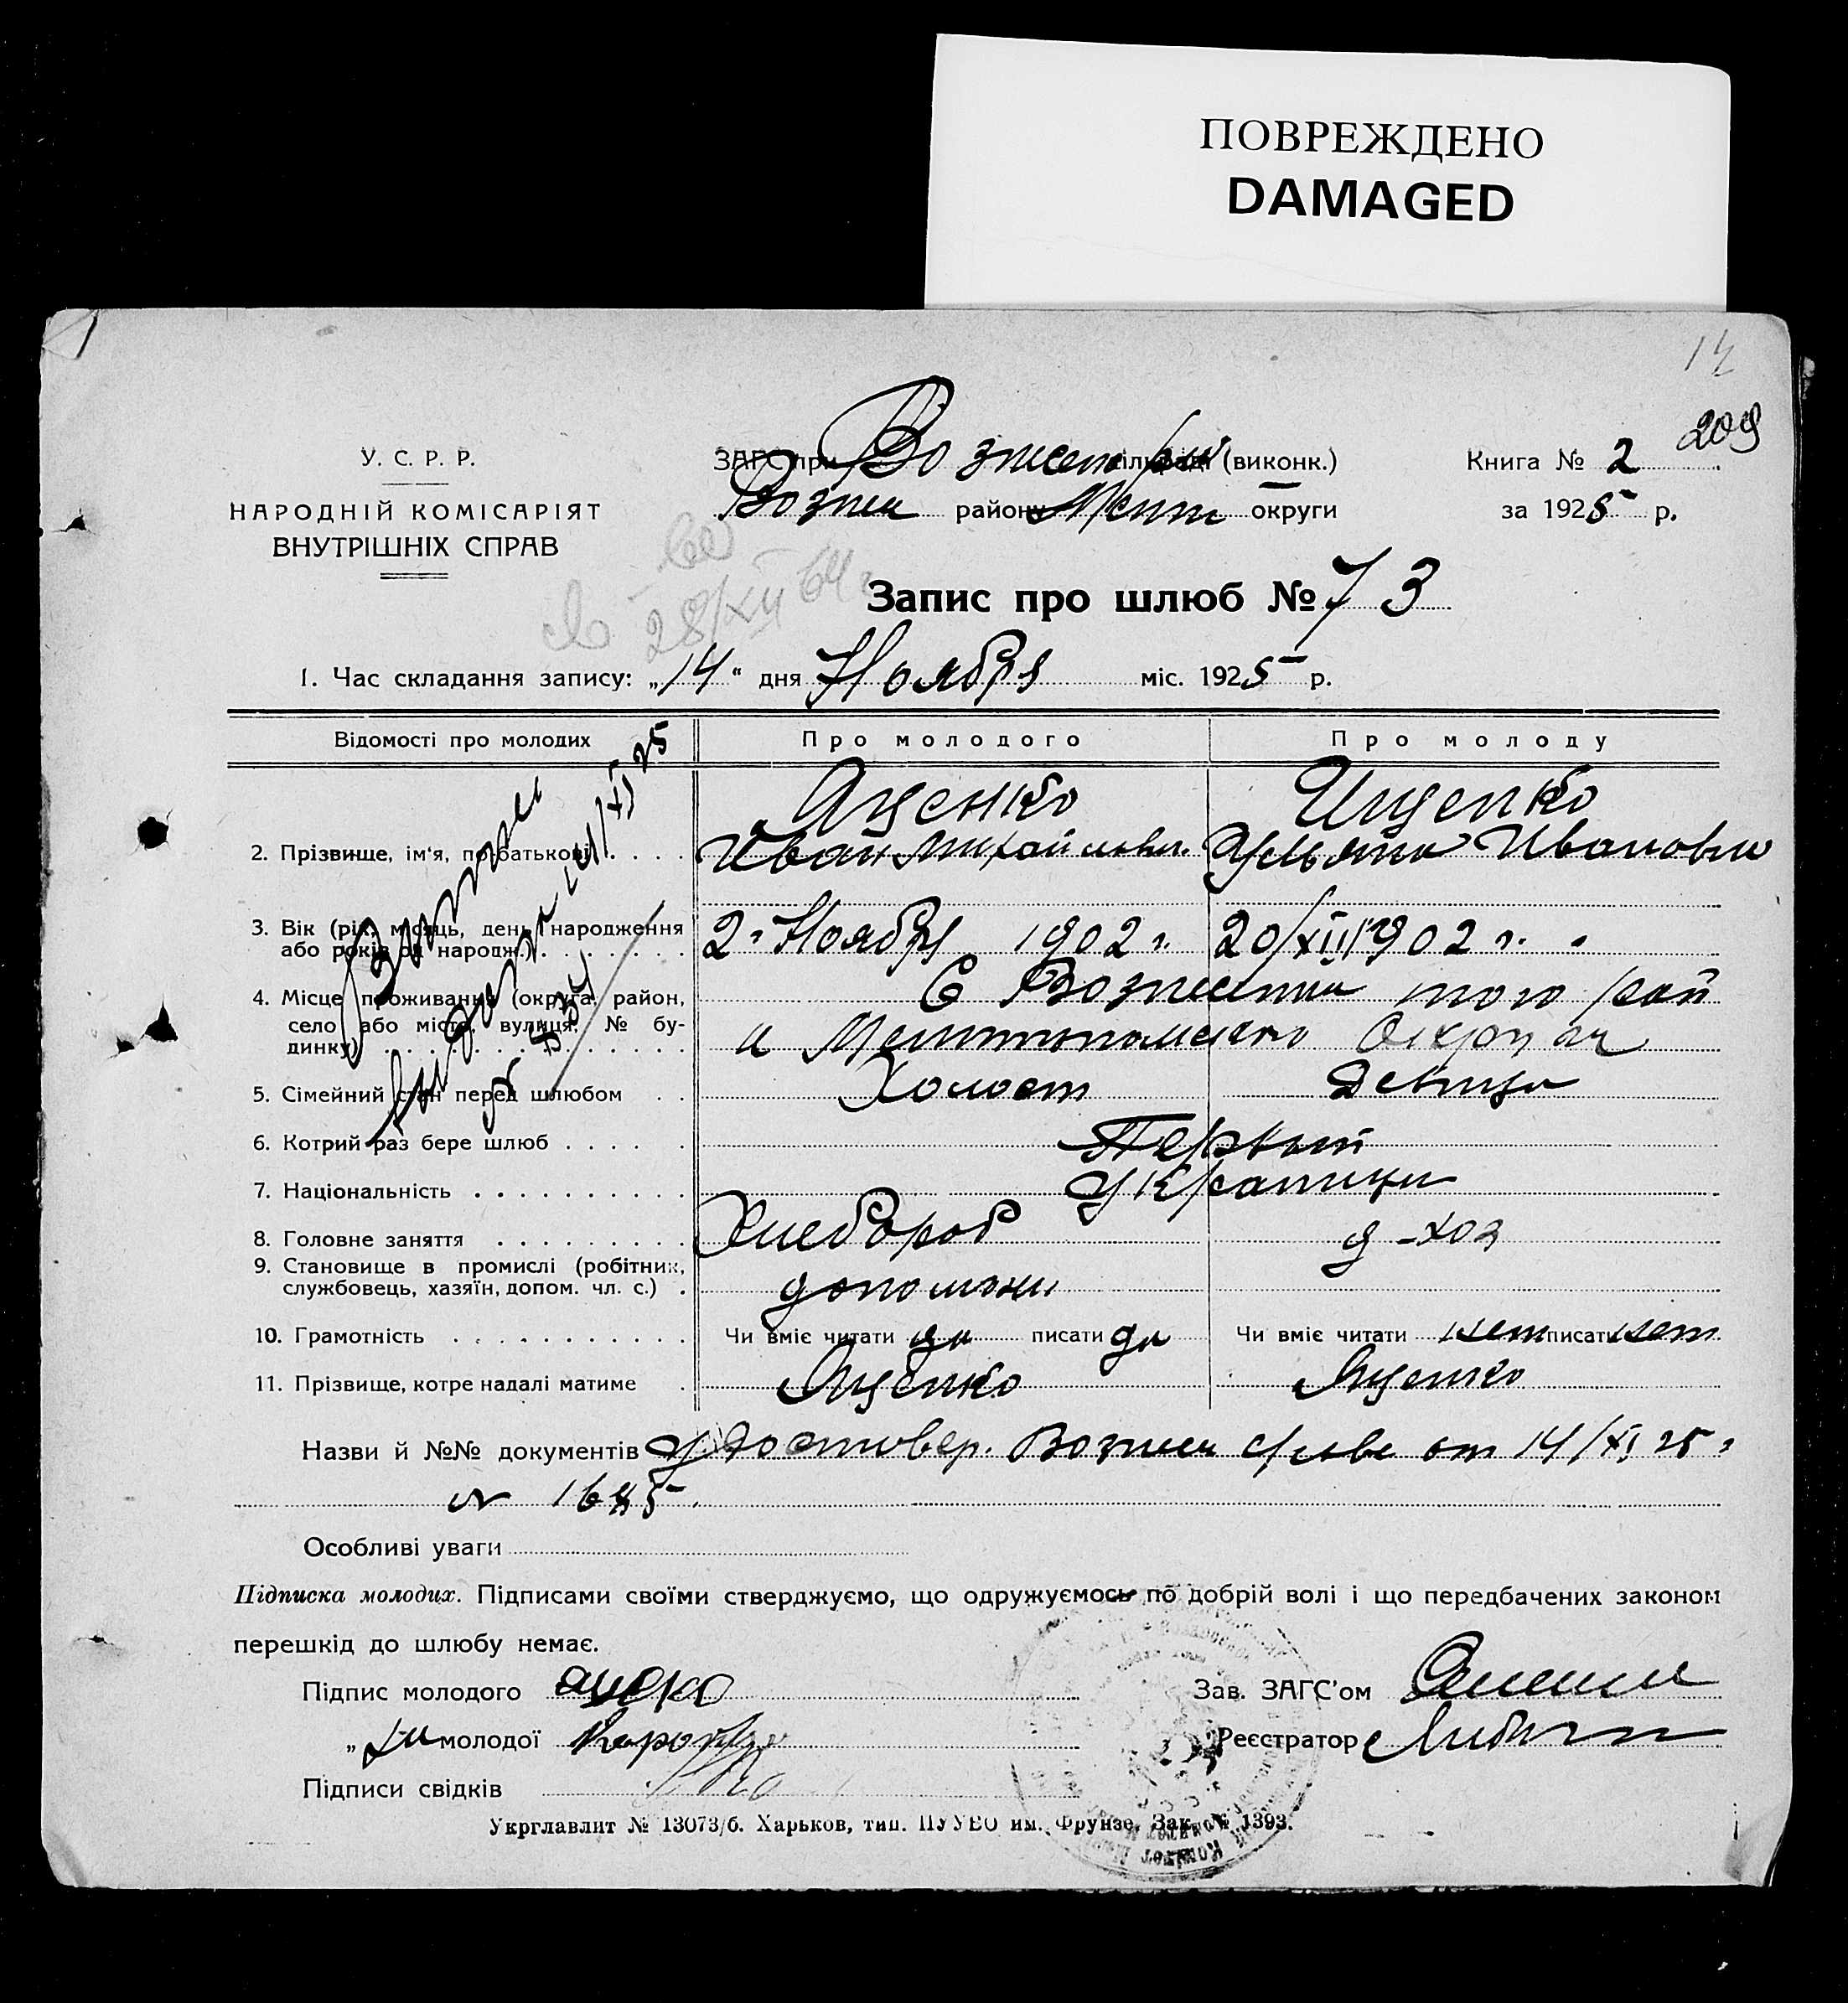 ПОВРЕЖДЕНО
DAMAGED
209
У. С. Р. Р.
НАРОДНІЙ КОМІСАРІЯТ
ВНУТРІШНІХ СПРАВ
ЗАГС при (виконк.)
Вознес району Мелит округи
Книга № 2
за 1925 р.
28/XII 64 г
Запис про шлюб № 73
1. Час складання запису: „14“ дня Ноября міс. 1925 р.
Відомості про молодих
Про молодого
Про молоду
Яценко
Ищенко
2. Прізвище, ім'я, по батькові
Иван Михайлович
Ульяна Ивановна
3. Вік (рік, місяць, день народження
або років од народж.)
2 Ноября 1902 г.
20/XII 1902 г.
4. Місце проживання (округа, район,
село або місто, вулиця, № бу-
динку)
С Вознесенка того рай
и Мелитопольского Округа
5. Сімейний стан перед шлюбом
Холост
Девица
6. Котрий раз бере шлюб
Первый
7. Національність
Украинцы
8. Головне заняття
Хлебороб
д-хоз
9. Становище в промислі (робітник,
службовець, хазяїн, допом. чл. с.)
10. Грамотність
Чи вміє читати да писати да
Чи вміє читати нет писати нет
11. Прізвище, котре надалі матиме
Яценко
Яценко
14/XI 25
Назви й №№ документів Удостовер. Вознес от 14/XI 25 г
Особливі уваги
Підписка молодих. Підписами своїми стверджуємо, що одружуємось по добрій волі і що передбачених законом
перешкід до шлюбу немає.
Підпис молодого
„ молодої
Підписи свідків
Зав. ЗАГС'ом
Реєстратор
Укрглавлит № 13073/б. Харьков, тип. ПУУВО им. Фрунзе. Зак. № 1393.